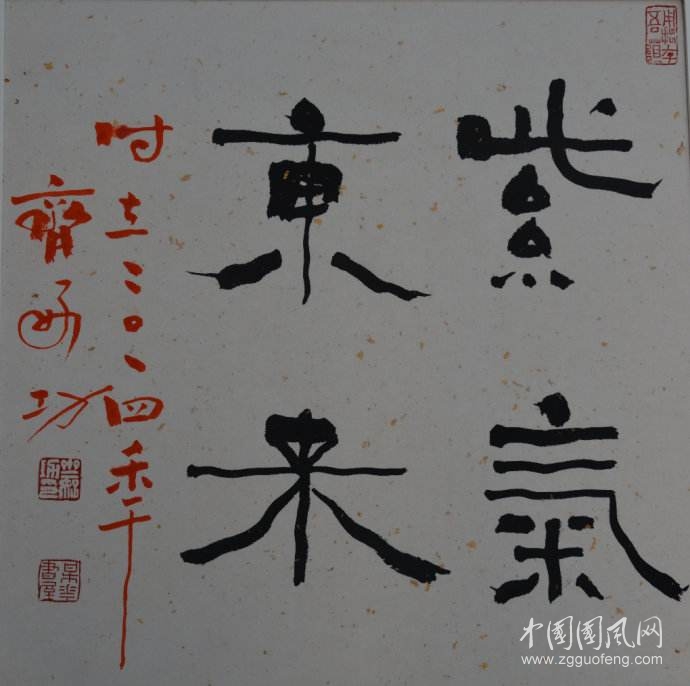 紫氣
東来
时在二〇一四年
齊功
中國國風网
www.zgguofeng.com